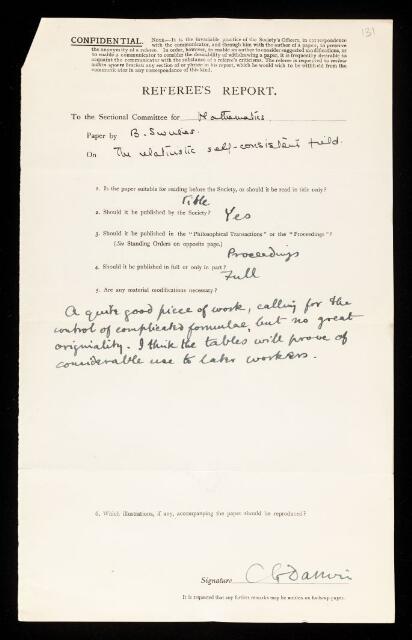 131
CONFIDENTIAL. NOTE.—It is the invariable practice of the Society's Officers, in correspondence
with the communicator, and through him with the author of a paper, to preserve
the anonymity of a referee. In order, however, to enable an author to consider suggested modifications, or
to enable a communicator to consider the desirability of withdrawing a paper, it is frequently desirable to
acquaint the communicator with the substance of a referee's criticisms. The referee is requested to enclose
within square brackets any section of or phrase in his report, which he would wish to be withheld from the
communicator in any correspondence of this kind.
REFEREE'S REPORT.
To the Sectional Committee for Mathematics.
Paper by B. Swirles.
On The relativistic self-consistent field.
1. Is the paper suitable for reading before the Society, or should it be read in title only?
Title
2. Should it be published by the Society? Yes
3. Should it be published in the "Philosophical Transactions" or the "Proceedings"?
(See Standing Orders on opposite page.)
Proceedings
4. Should it be published in full or only in part?
Full
5. Are any material modifications necessary?
A quite good piece of work, calling for the
control of complicated formulae, but no great
originality. I think the tables will prove of
considerable use to later workers.
6. Which illustrations, if any, accompanying the paper should be reproduced?
Signature C G Darwin
It is requested that any further remarks may be written on foolscap paper.